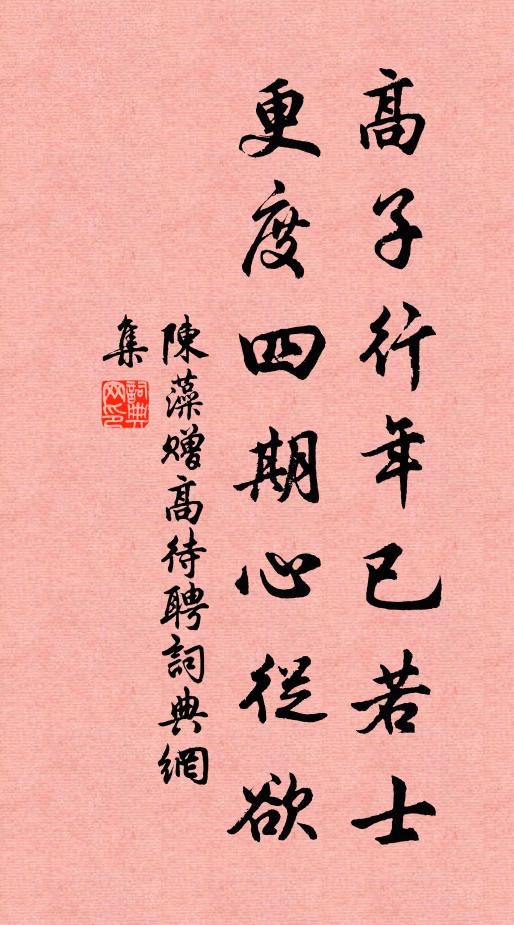 高子行年已若士
更度四期心從欲
陳藻贈高待聘詞典網
集
詞典
网印